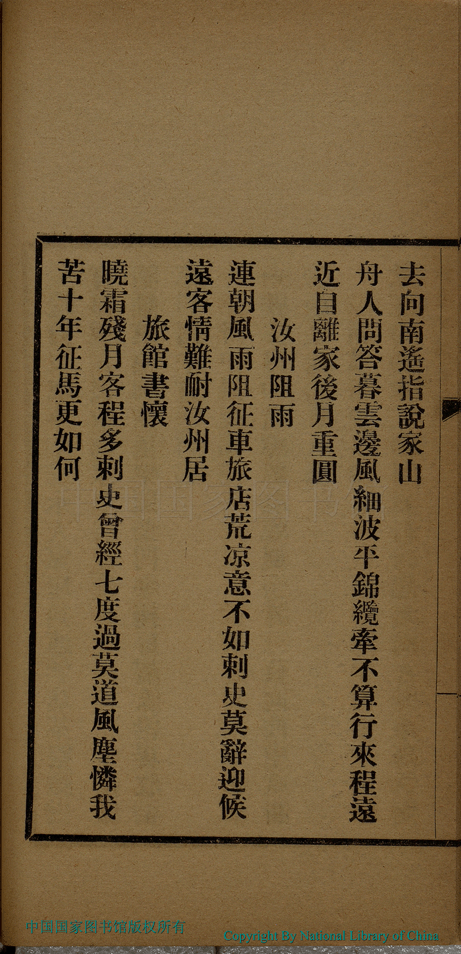 去向南遙指說家山
舟人問答暮雲邊風細波平錦纜牽不算行來程遠
近自離家後月重圓
汝州阻雨
連朝風雨阻征車旅店荒凉意不如刺史莫辭迎候
遠客情難耐汝州居
旅館書懷
曉霜殘月客程多刺史曾經七度過莫道風塵憐我
苦十年征馬更如何
中国国家图书馆
中国国家图书馆版权所有
Copyright By National Library of China